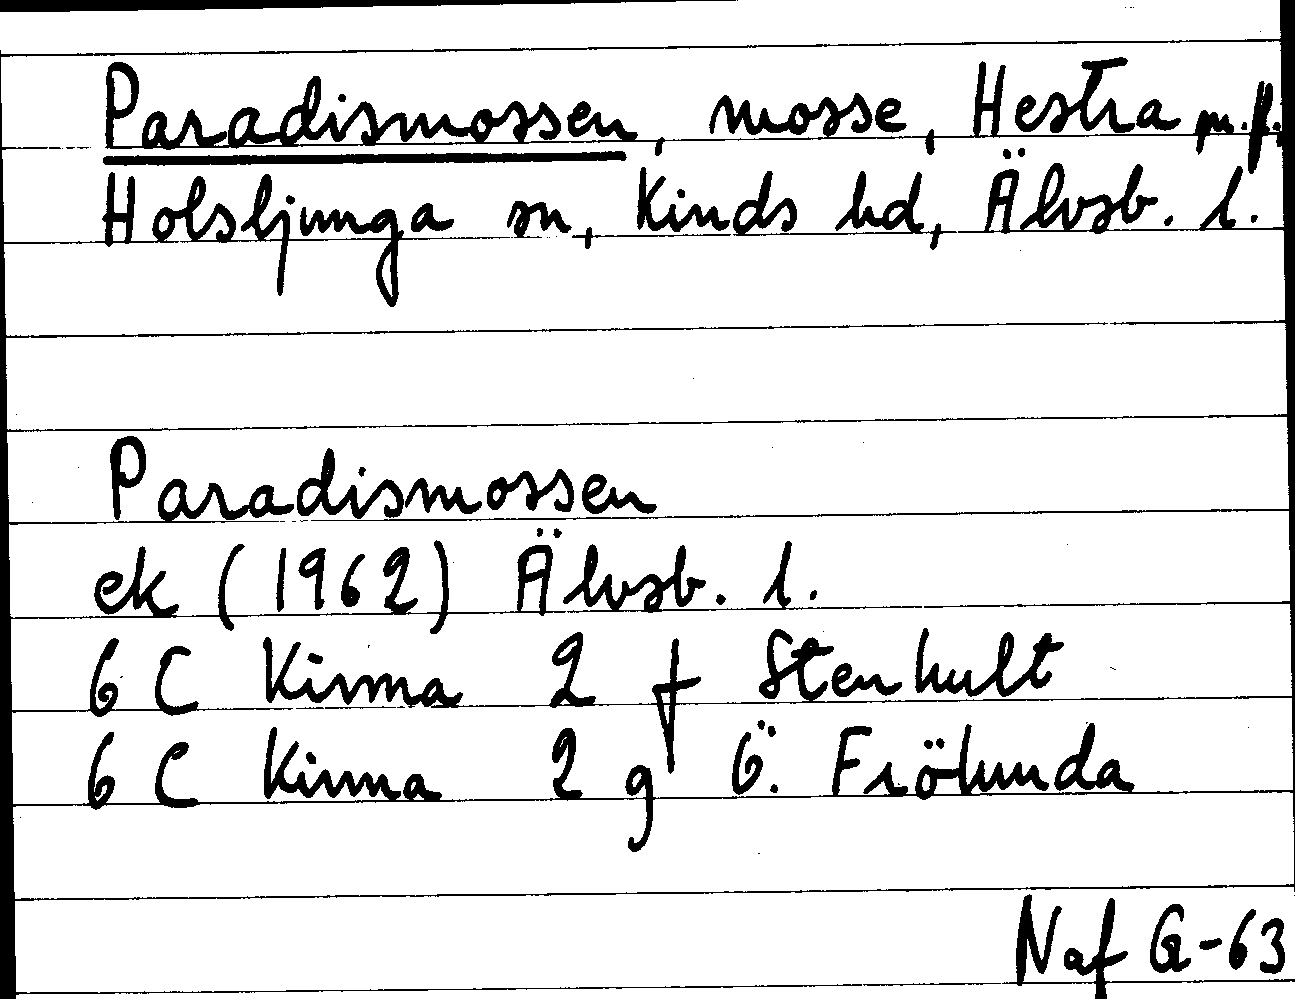 Paradismossen, mosse, Hestra m.fl.
Holsljunga sn, Kinds hd, Älvsb. l.
Paradismossen
ek (1962) Älvsb. l.
6 C Kinna 2 f Stenhult
6 C Kinna 2 g Ö. Frölunda
Naf G-63